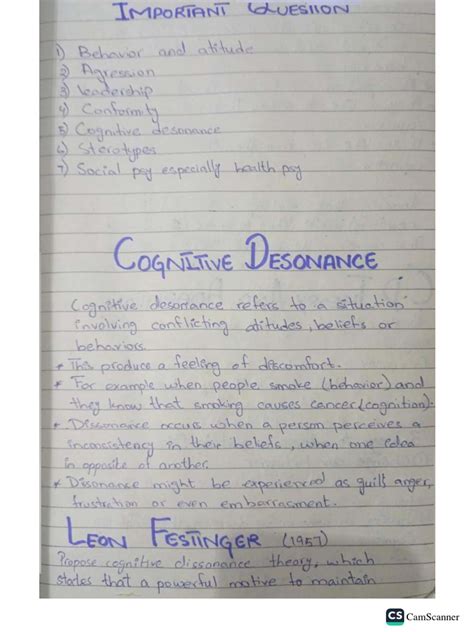 IMPORTANT QUESTION
1) Behavior and atitude
2) Agression
3) leadership
4) Conformity
5) Cognitive desonance
6) Sterotypes
7) Social psy especially health psy
COGNITIVE DESONANCE
Cognitive desonance refers to a situation
involving conflicting atitudes, beliefs or
behaviors.
* This produce a feeling of discomfort.
* For example when people smoke (behavior) and
they know that smoking causes cancer (cognition).
* Dissonance occurs when a person perceives a
inconsistency in their beliefs, when one idea
in opposite of another.
* Dissonance might be experienced as guilt anger,
frustration or even embarrasment.
LEON FESTINGER (1957)
Propose cognitive dissonance theory, which
states that a powerful motive to maintain
CS CamScanner